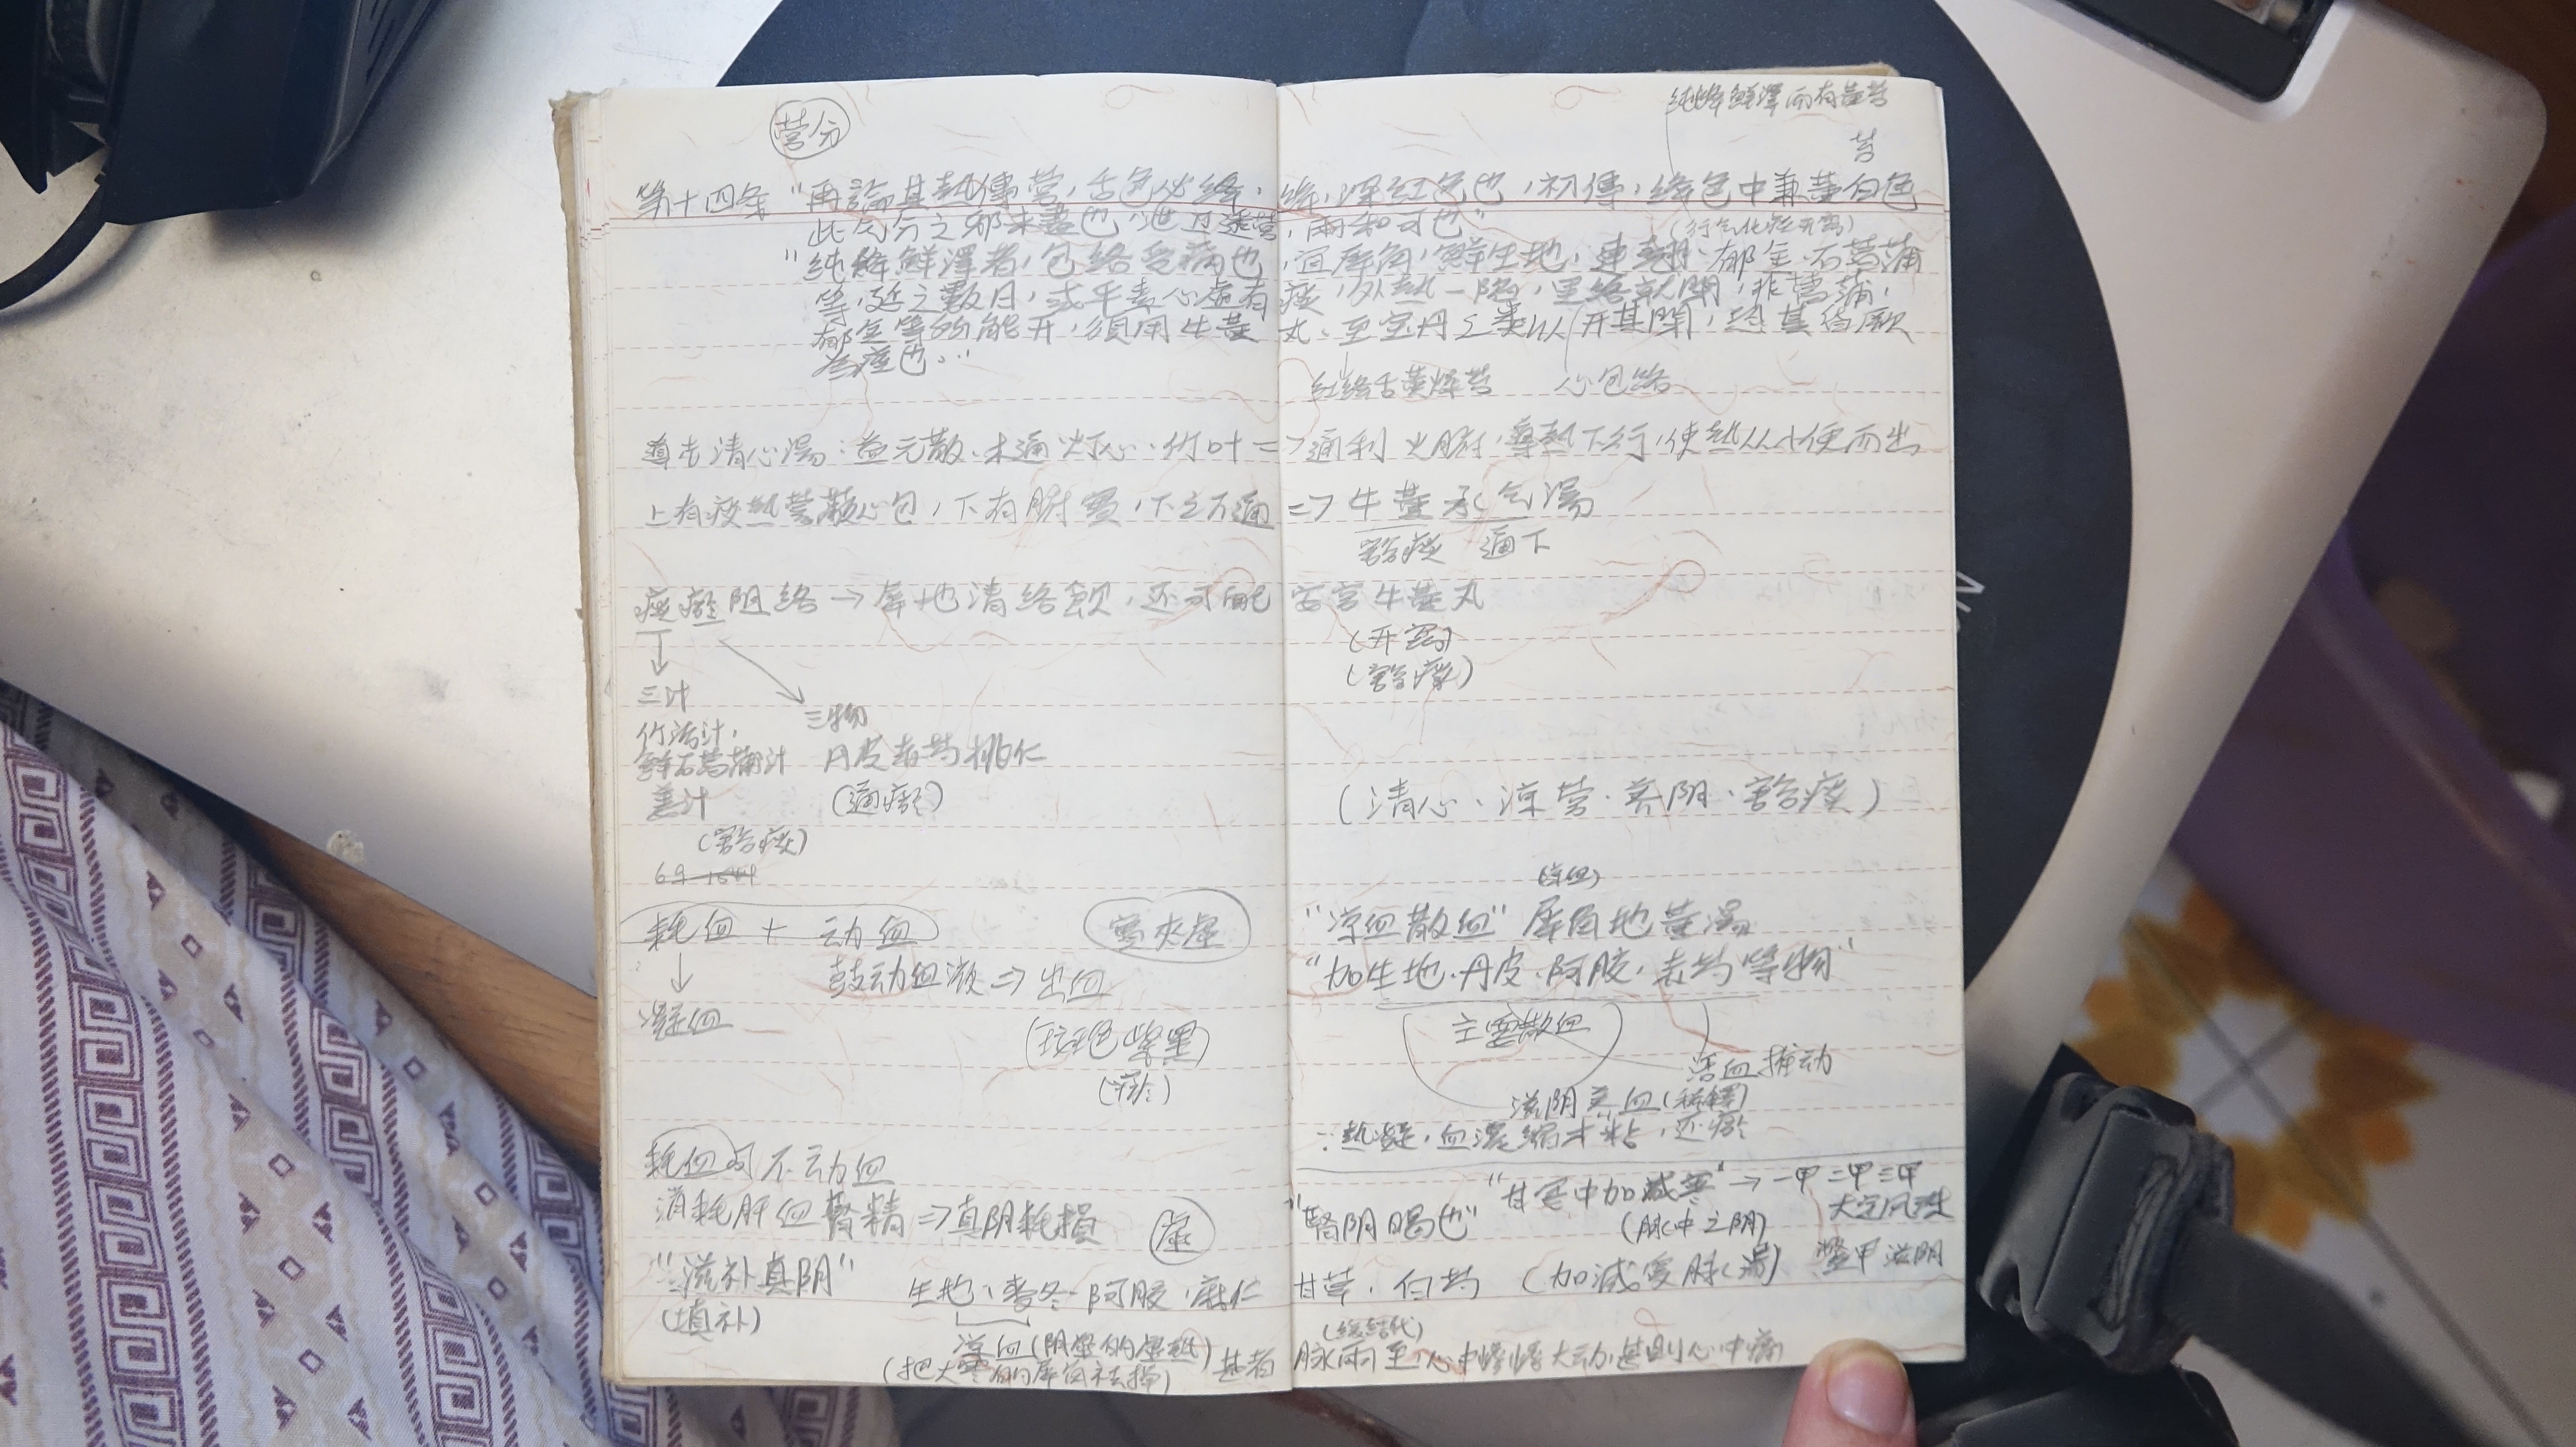 营分
纯绛鲜澤而有黄苔
苔
第十四条 “再論其熱傳营，舌色必绛，绛，深红色也，初傳，绛色中兼黄白色
此气分之邪未盡也，泄卫透营，兩和可也”
(行气化痰开窍)
“纯绛鮮澤者，包络受病也，宜犀角，鮮生地，連翘、郁金、石菖蒲
等，延之數日，或平素心虚有痰，外熱一陷，里络就閉，非菖蒲，
郁金等所能开，須用牛黄丸、至宝丹之类以开其閉，恐其昏厥
为痉也。”
红绛舌黄燥苔 心包络
導赤清心湯：益元散、木通、灯心、竹叶 => 通利火腑，導熱下行，使熱从小便而出
上有痰熱营蔽心包，下有腑實，下之不通 => 牛黄承气湯
豁痰 通下
痰瘀阻络 → 犀地清络飲，还可配安宫牛黄丸
(开窍)
(豁痰)
三汁
三物
竹沥汁，
鲜石菖蒲汁 丹皮赤芍桃仁
姜汁 (通瘀)
(清心、凉营、养阴、豁痰)
(豁痰)
耗血 + 动血 實夾虚
“凉血散血” 犀角地黄湯
鼓动血液 => 出血
“加生地、丹皮、阿胶、赤芍等物”
凝血
主要散血
(斑色紫黑)
(瘀)
活血推动
滋阴养血 (稀释)
∵熱凝，血濃縮才粘，还瘀
耗血而不动血
消耗肝血腎精 => 真阴耗損 虚
“腎阴竭也” “甘寒中加减寒” → 一甲 二甲 三甲
大定风珠
(脉中之阴)
“滋补真阴” 生地、麥冬、阿胶、麻仁 甘草、白芍 (加减复脉湯) 鳖甲滋阴
(填补)
凉血 (阴虚的虚熱)
(结代)
(把大寒的犀角去掉) 甚者脉兩至，心中憺憺大动，甚則心中痛